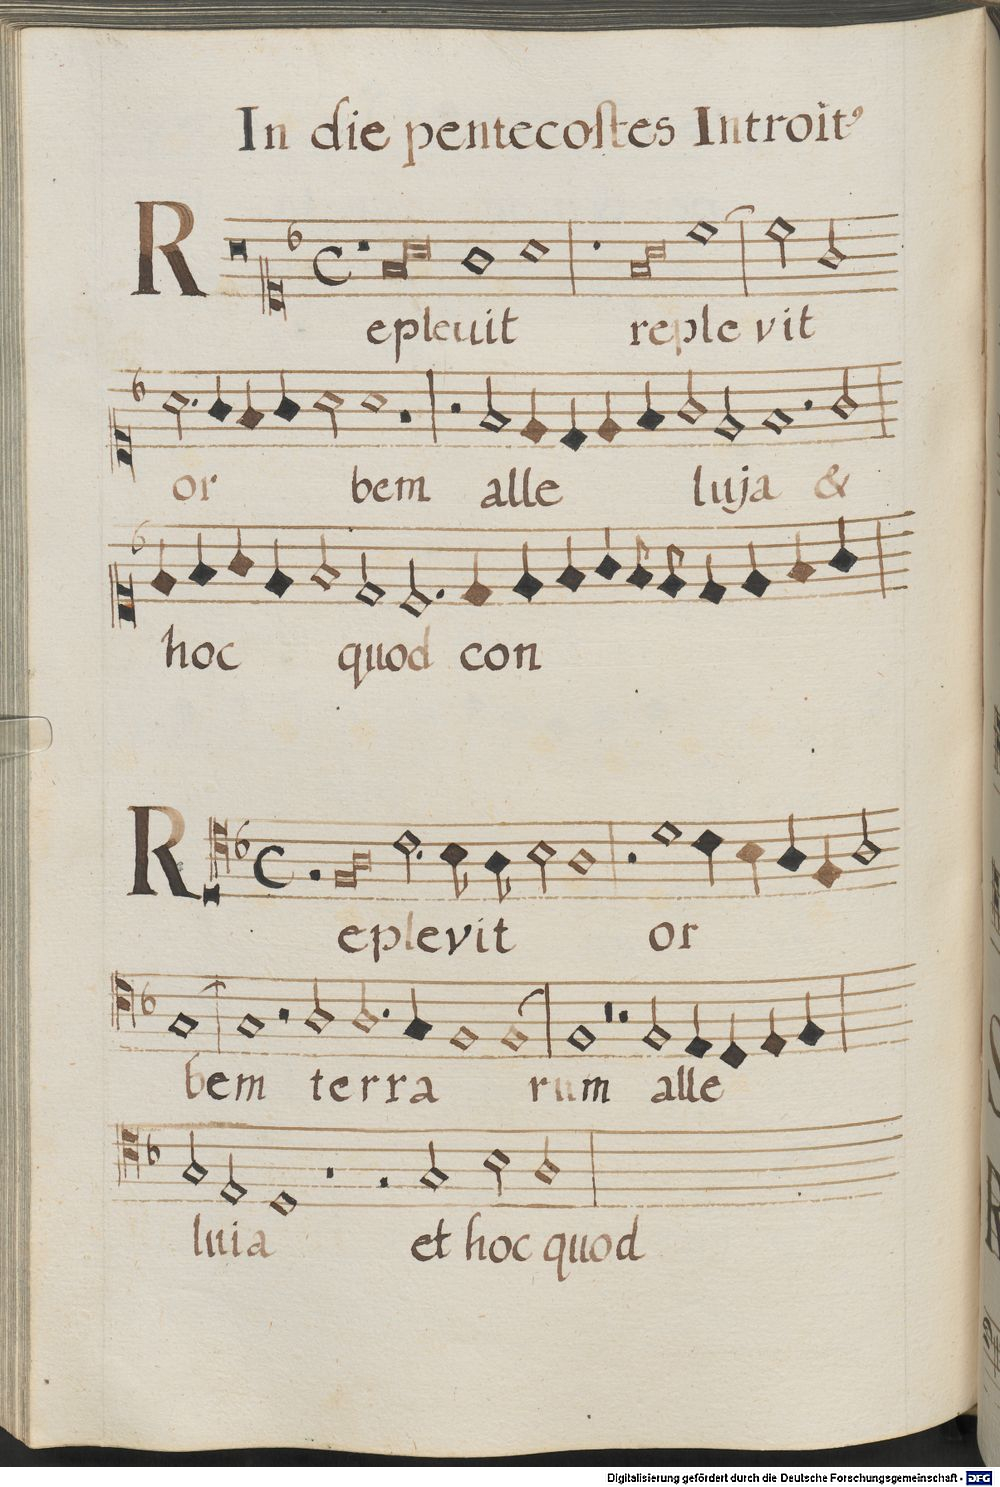 In die pentecoſtes Introit9
Repleuit reple vit
or bem alle luja &
hoc quod con
Replevit or
bem terra rum alle
luia et hoc quod
Digitalisierung gefördert durch die Deutsche Forschungsgemeinschaft - DFG